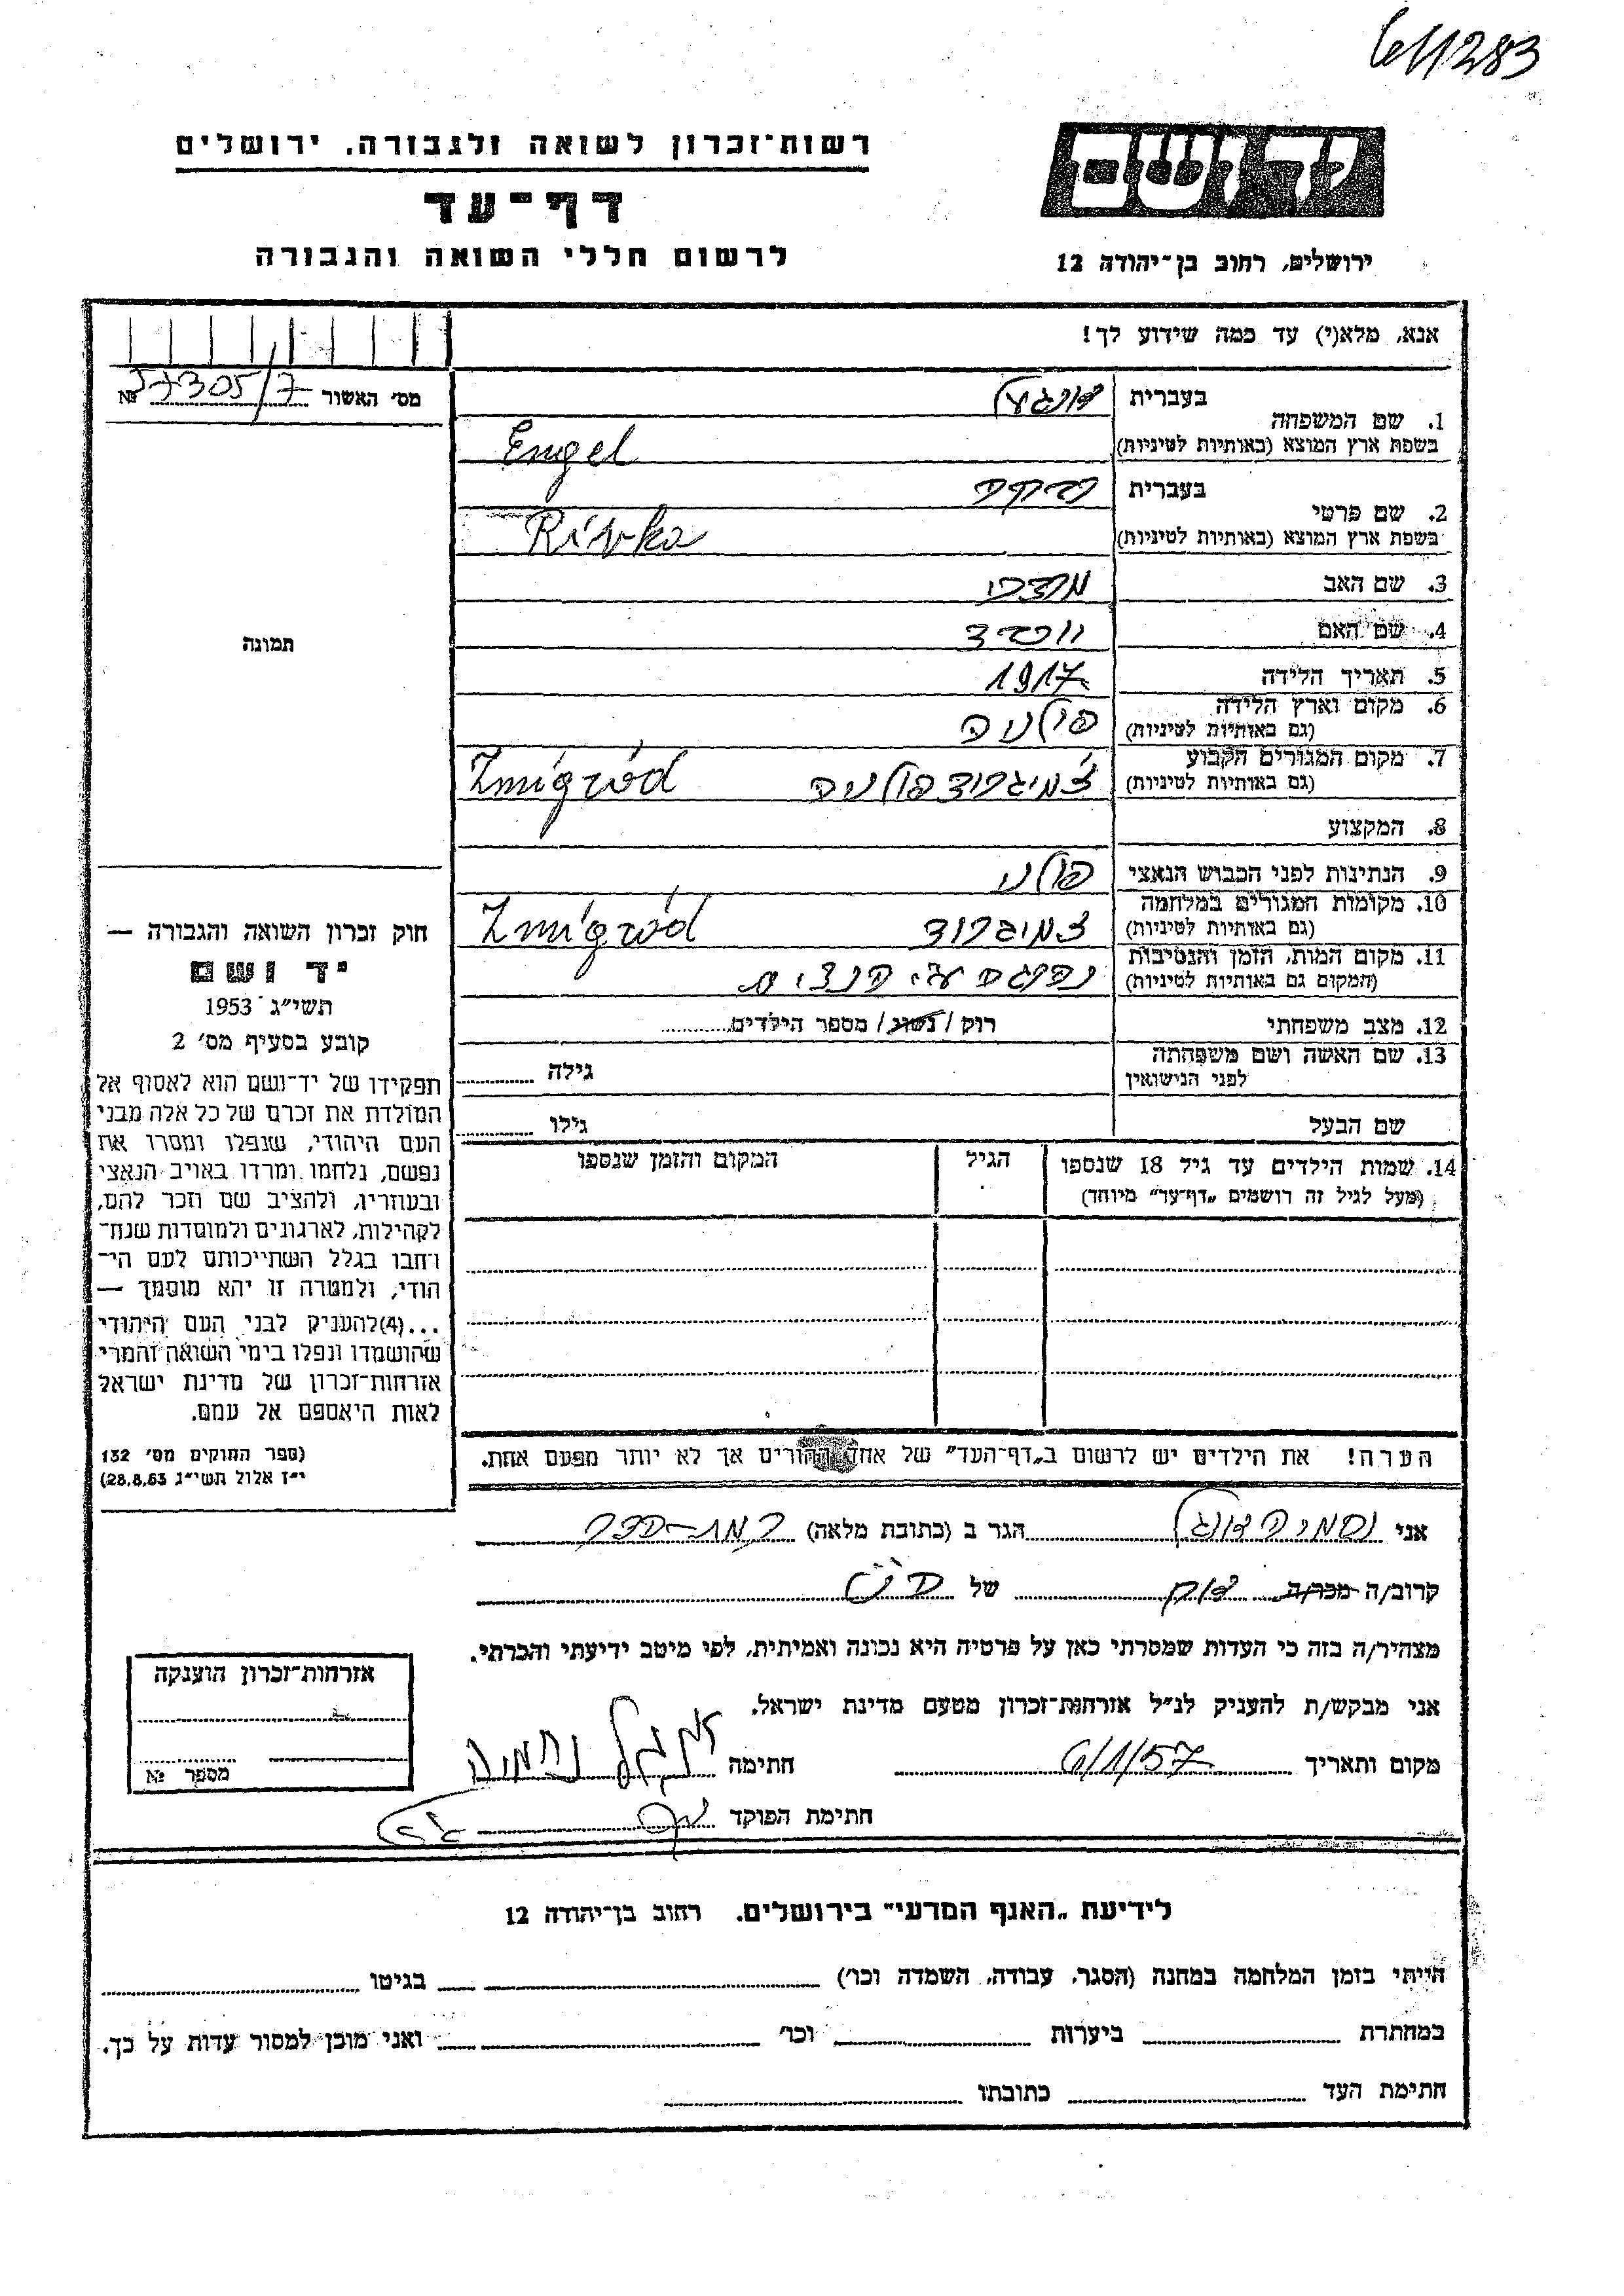 611283
רשות־זכרון לשואה ולגבורה, ירושלים
יד ושם
דף־עד
לרשום חללי השואה והגבורה
ירושלים, רחוב בן־יהודה 12
אנא, מלא(י) עד כמה שידוע לך!
מס׳ האשור № 57305/7
1. שם המשפחה
בעברית אנגל
בשפת ארץ המוצא (באותיות לטיניות) Engel
2. שם פרטי
בעברית רבקה
בשפת ארץ המוצא (באותיות לטיניות) Rivka
3. שם האב מרדכי
4. שם האם
5. תאריך הלידה 1917
6. מקום וארץ הלידה (גם באותיות לטיניות) פולניה
7. מקום המגורים הקבוע (גם באותיות לטיניות) צ׳מיגרוד פולניה Zmigród
8. המקצוע
9. הנתינות לפני הכבוש הנאצי פולני
10. מקומות המגורים במלחמה (גם באותיות לטיניות) צמיגרוד Zmigród
11. מקום המות, הזמן והנסיבות (המקום גם באותיות לטיניות) נהרגה ע״י הנצים
12. מצב משפחתי רוק / נשוי / מספר הילדים
13. שם האשה ושם משפחתה לפני הנישואין גילה
שם הבעל גילו
14. שמות הילדים עד גיל 18 שנספו
(מעל לגיל זה רושמים „דף־עד״ מיוחד)
הגיל
המקום והזמן שנספו
הערה! את הילדים יש לרשום ב„דף־העד״ של אחד ההורים אך לא יותר מפעם אחת.
תמונה
חוק זכרון השואה והגבורה —
יד ושם
תשי״ג 1953
קובע בסעיף מס׳ 2
תפקידו של יד־ושם הוא לאסוף אל
המולדת את זכרם של כל אלה מבני
העם היהודי, שנפלו ומסרו את
נפשם, נלחמו ומרדו באויב הנאצי
ובעוזריו, ולהציב שם וזכר להם,
לקהילות, לארגונים ולמוסדות שנח־
רחבו בגלל השתייכותם לעם הי־
הודי, ולמטרה זו יהא מוסמך —
...(4)להעניק לבני העם היהודי
שהושמדו ונפלו בימי השואה והמרי
אזרחות־זכרון של מדינת ישראל
לאות היאספם אל עמם.
(ספר החוקים מס׳ 132
י״ז אלול תשי״ג 28.8.53)
אני נחמיה אנגל הגר ב (כתובת מלאה)
קרוב/ה מכר/ה אח של הנ״ל
מצהיר/ה בזה כי העדות שמסרתי כאן על פרטיה היא נכונה ואמיתית, לפי מיטב ידיעתי והכרתי.
אני מבקש/ת להעניק לנ״ל אזרחות־זכרון מטעם מדינת ישראל.
מקום ותאריך 6/1/57 חתימה אנגל נחמיה
חתימת הפוקד
אזרחות־זכרון הוענקה
מספר №
לידיעת „האגף המדעי״ בירושלים. רחוב בן־יהודה 12
הייתי בזמן המלחמה במחנה (הסגר, עבודה, השמדה וכו׳) בגיטו
במחתרת ביערות וכו׳ ואני מוכן למסור עדות על כך.
חתימת העד כתובתו